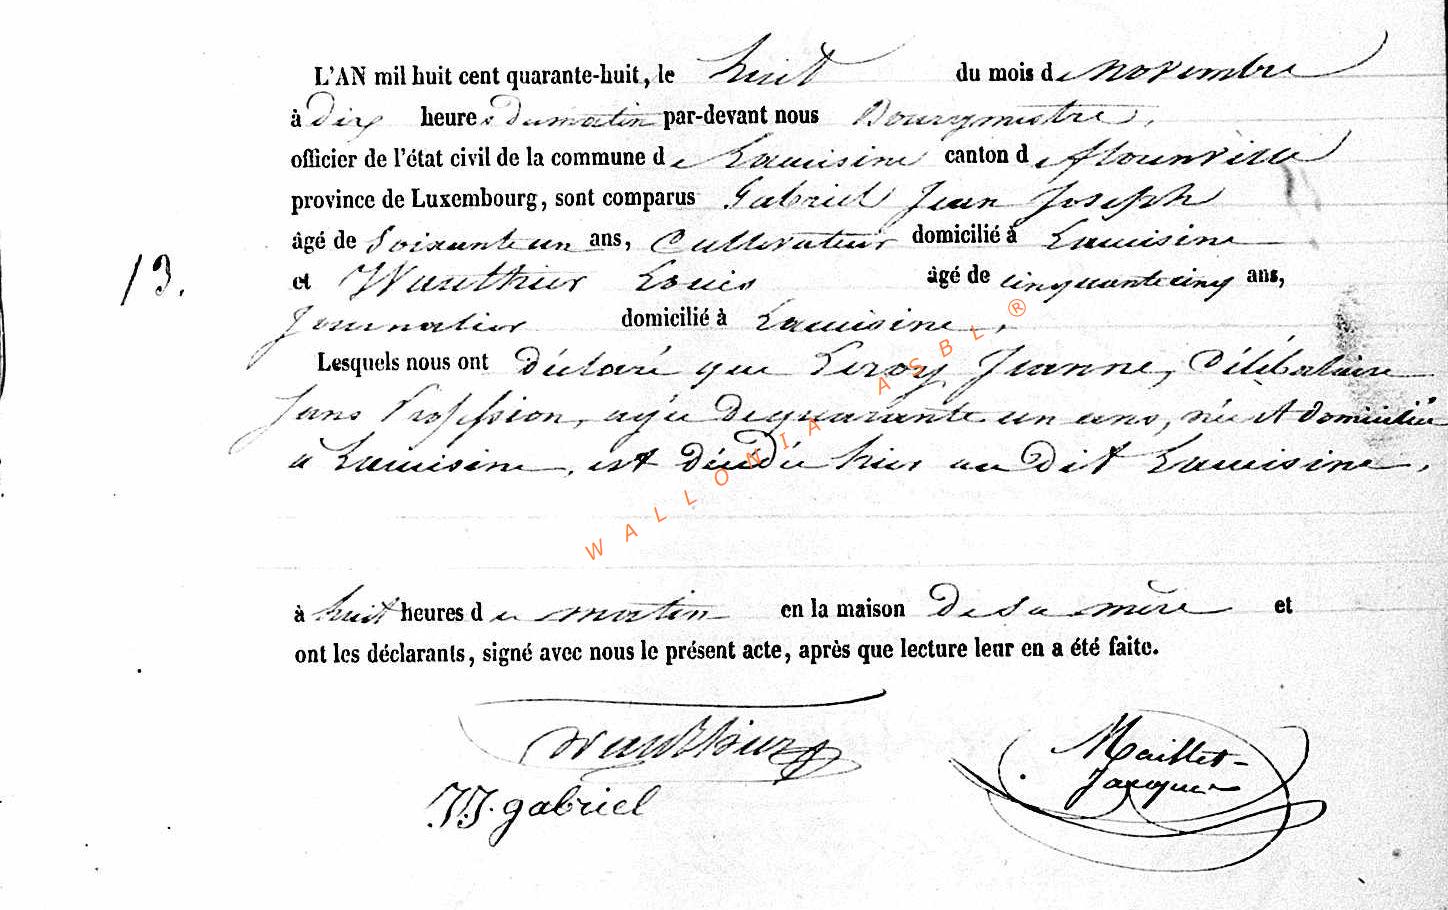 L'AN mil huit cent quarante-huit, le huit du mois de novembre
à Dix heures Du matin par-devant nous Bourgmestre,
officier de l'état civil de la commune de Lacuisine canton de florenville
province de Luxembourg, sont comparus Gabriel Jean Joseph
âgé de Soixante un ans, Cultivateur domicilié à Lacuisine
13. et Wauthier Louis âgé de cinquante cinq ans,
Journalier domicilié à Lacuisine,
Lesquels nous ont Déclaré que Leroy Jeanne, Célibataire
sans Profession, agée De quarante un ans, née et domiciliée
a Lacuisine, est Décédée hier au Dit Lacuisine,
à huit heures du matin en la maison De Sa mère et
ont les déclarants, signé avec nous le présent acte, après que lecture leur en a été faite.
Wauthier
JJ. gabriel
Maillet-
Jacques
WALLONIA ASBL ®